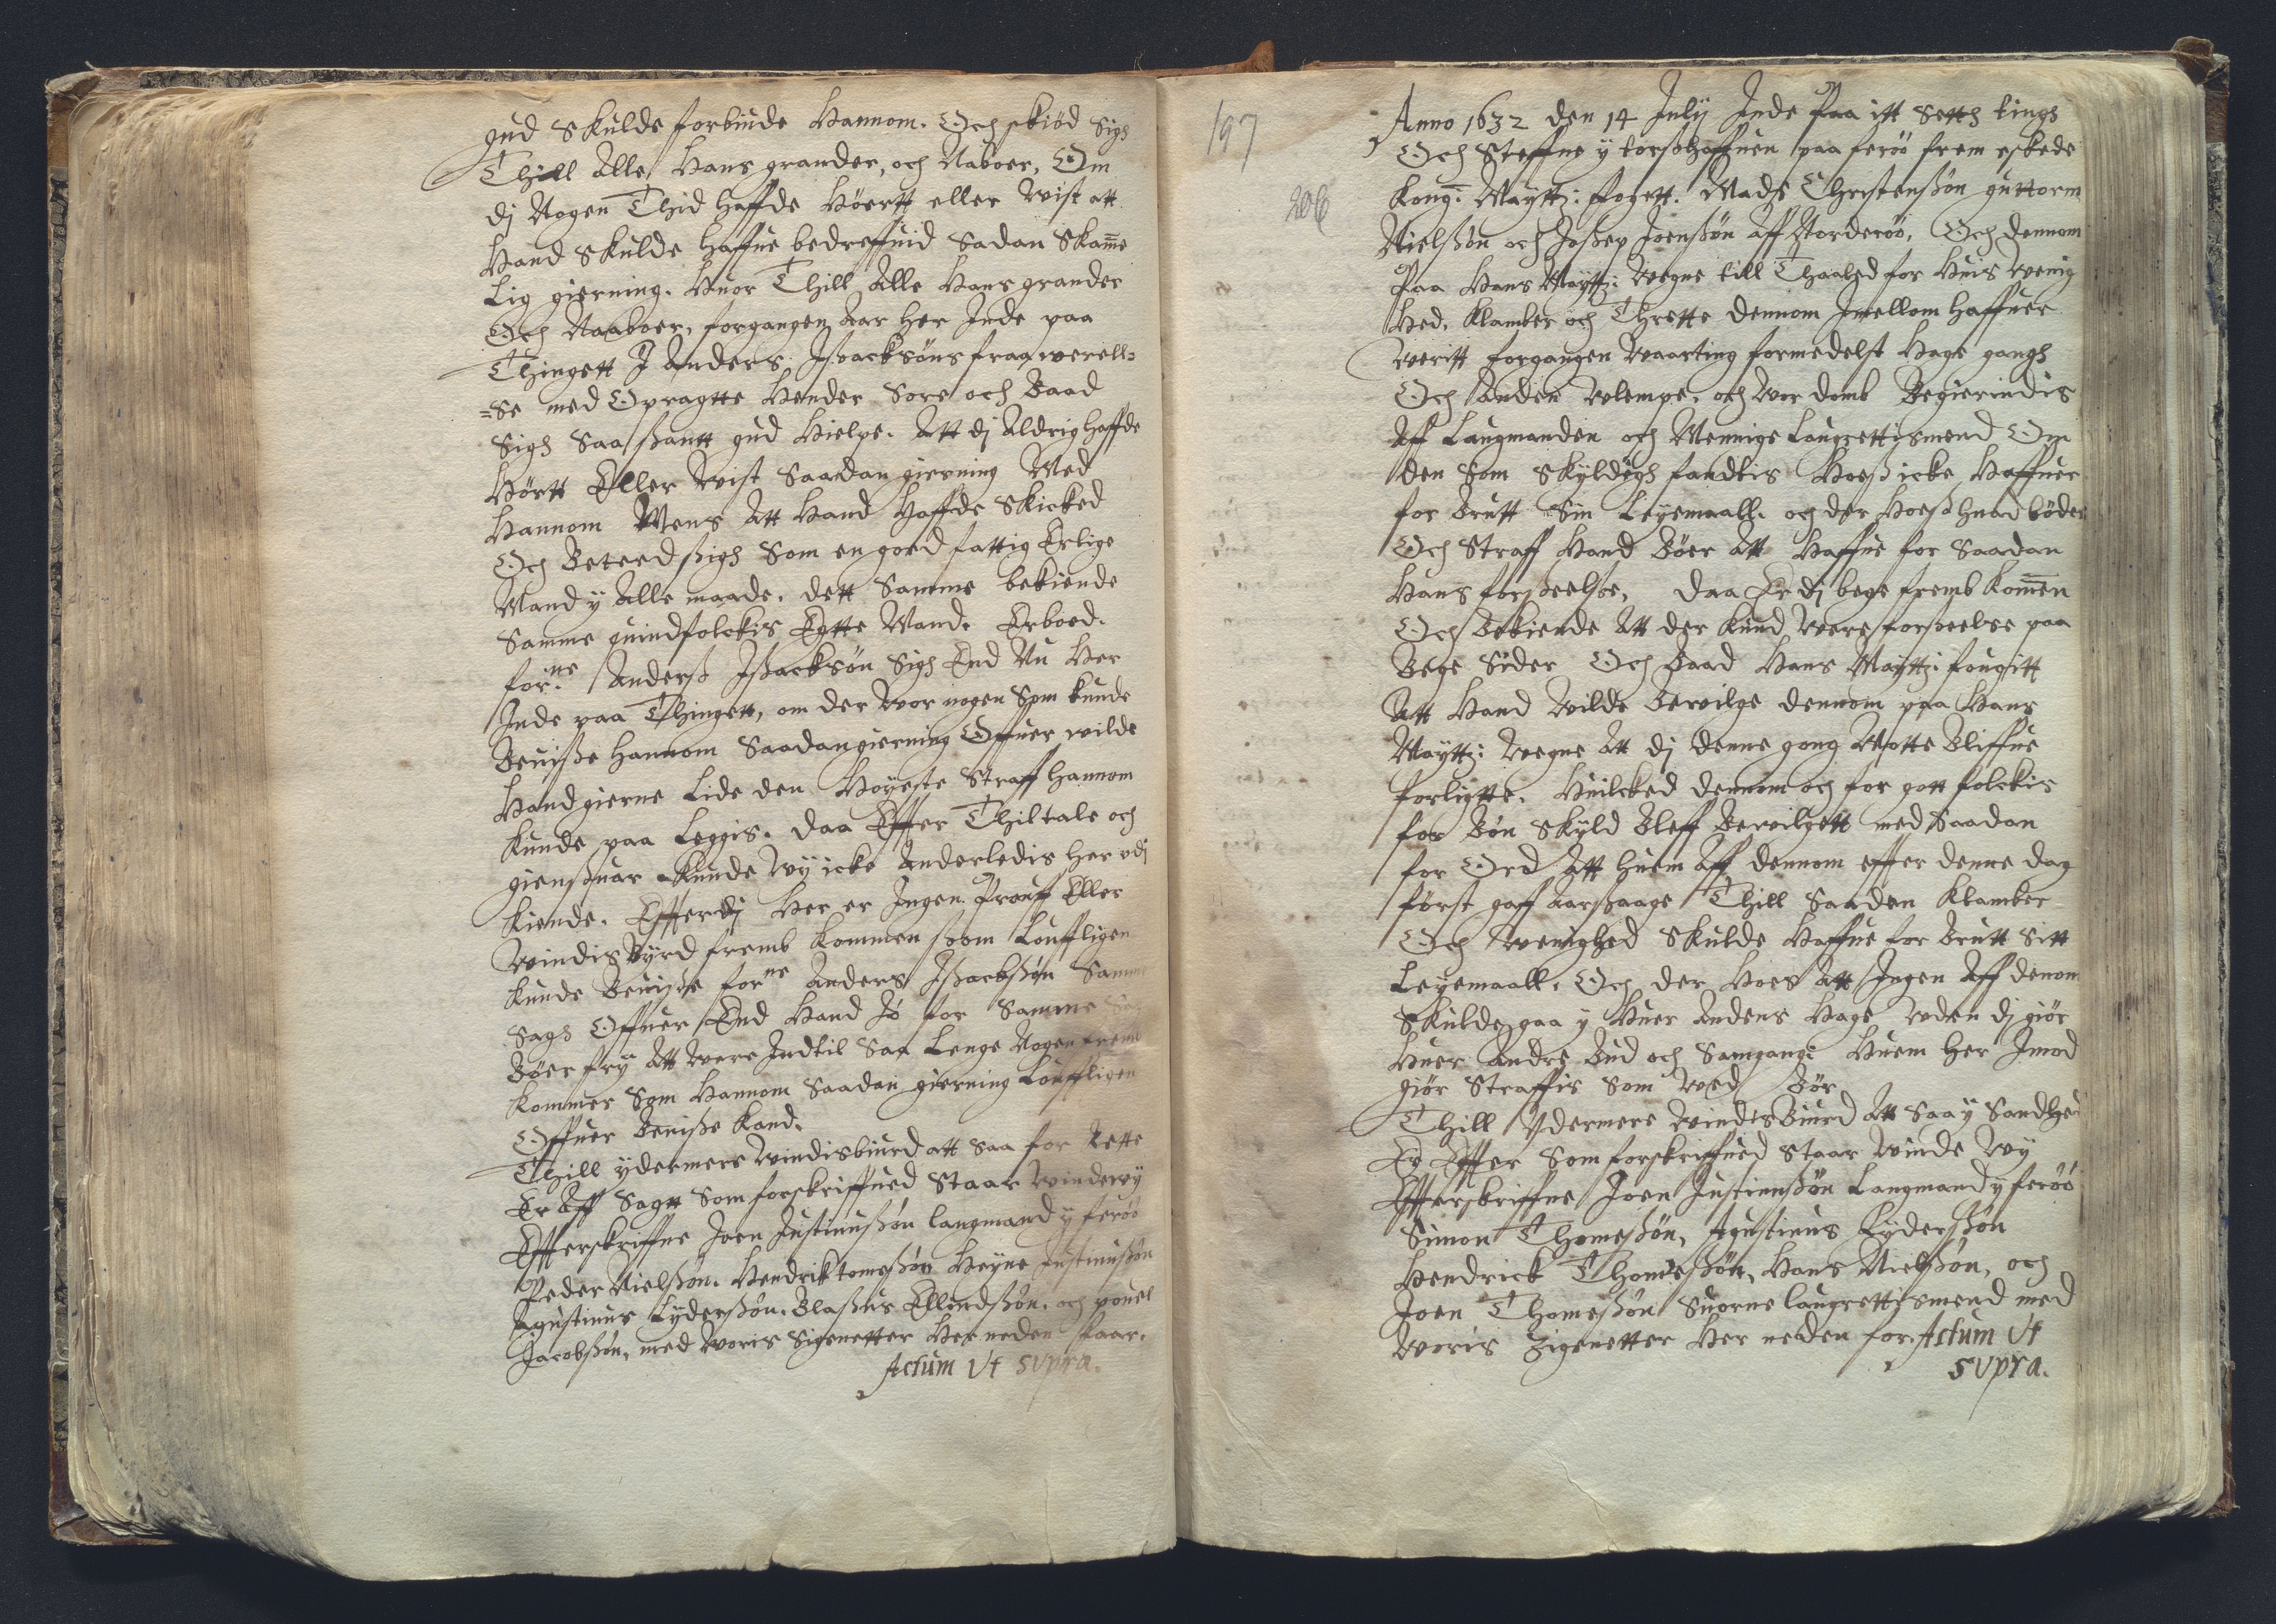 gud Skulde forbiude Hannom. Och skiød Sigh
Thill Alle Hans grander, och Naboer, Om
dj Nogen Thid haffde Høertt eller Wist att
Hand Skulde haffue bedreffuid Sadan Skame
Lig gierning. Huor Thill Alle Hans grander
Och Naaboer, forgangen Aar her Inde paa
Thingett I Anders Issacksøns fraa werell=
=Se med Opragtte Hender Sore och Baad
Sigh Saa ßantt gud Hielpe. Att dj Aldrig haffde
Hørtt Eller Wist Saadan gierning Med
Hannom Mens Att Hand Haffde Skicked
Och Beteed ßigh Som en goed fattig Erlige
Mand y Alle maade. dett Samme bekiende
Samme quindfolckis Egtte Mand. Erboed.
forne Anderß Ißacksøn Sigh End Nu Her
Inde paa Thingett, om der Wor nogen Som kunde
Beuiße hannom Saadan gierning Offuer wilde
Hand gierne Lide den Høyeste Straff hannom
kunde paa Leggis. daa Effter Thiltale och
gienßuar Kunde Wy icke Anderledis her vdj
kiende. Effterdj Her er Ingen Prouff Eller
Windis Byrd fremb kommen ßom Louffligen
kunde Beuiße forne Anders Ißackßøn Samme
Sagh Offuer End Hand Jo for Samme Sag
Bøer fry Att Were Indtil Saa Lenge Nogen frem
kommer Som Hannom Saadan gierning Louffligen
Offuer Beuiße kand.
Thill ydermere Windisbiurd att Saa for Rette
Er Aff Sagtt Som forskriffued Staar Winde wy
Effterskriffne Joen Justinußøn laugmand y ferøø
Peder Nielßøn. Hendrik tomeßøn Heyne Justinußøn
Agustinus Lyderßøn. Blaßius Ellendßøn. och pouel
Jacobßøn, med Woris Signetter Her neden staar.
Actum Vt supra.
197
206
Anno 1632 den 14 July Inde Paa itt Setth tingh
Och Steffne y torßhaffuen paa ferøø frem eskede
kong: Maytt: fogett. Mads Christenßøn guttorm
Nielßøn och Joßep Joenßøn Aff Norderøø, Och dennom
Paa Hans Maytt: Wegne till Thaaled for Huis Wenig
Hed, Klamber och Thrette dennom Imellom haffuer
Weritt forgangen Waarting formedelst Hage gangh
Och Anden Ulempe, och Wor domb Begierindis
Aff Laugmanden och Mennige Laugrettismend Om
den Som Skyldigh fandtis Hoeß icke Haffuer
for Brutt Sin Leyemaall. och der Hoeß huad bøder
Och Straff Hand Bøer Att Haffue for Saadan
Hans forßeelße, daa Er dj bege fremb komen
Och Bekiende Att der kund Were forßeelse paa
Bege Sider Och Baad Hans Maytt: fougitt
Att Hand Wilde Bewilge dennom paa Hans
Maytt: Wegne Att dj denne gong Motte Bliffue
forligtte. Huilcked dennom och for gott folckis
for Bøn Skyld Bleff Bewilgett med Saadan
for Ord Att huem Aff dennom effter denne dag
først gaff Aarßaage Thill Saaden Klamber
Och Wenighed Skulde Haffue for Brutt Sitt
Leyemaall. Och der Hoes Att Ingen Aff denom
Skulde gaa y Huer Andens Hage Uden dj giør
Huer Andre Bud och Samgang: Huem her Imod
giør Straffis Som Ved Bør
Thill Ydermere Windis Biurd Att Saa y Sandhed
Er Effter Som forskriffued Staar Winde Wy
Effterskriffne Joen Justinußøn Laugmand y ferøø
Simon Thomeßøn, Agustinus Lyderßøn
Hendrick Thomeßøn, Hans Nielßøn, och
Joen Thomeßøn Suorne laugrettismend med
Woris Zignetter Her neden for. Actum Vt
supra.